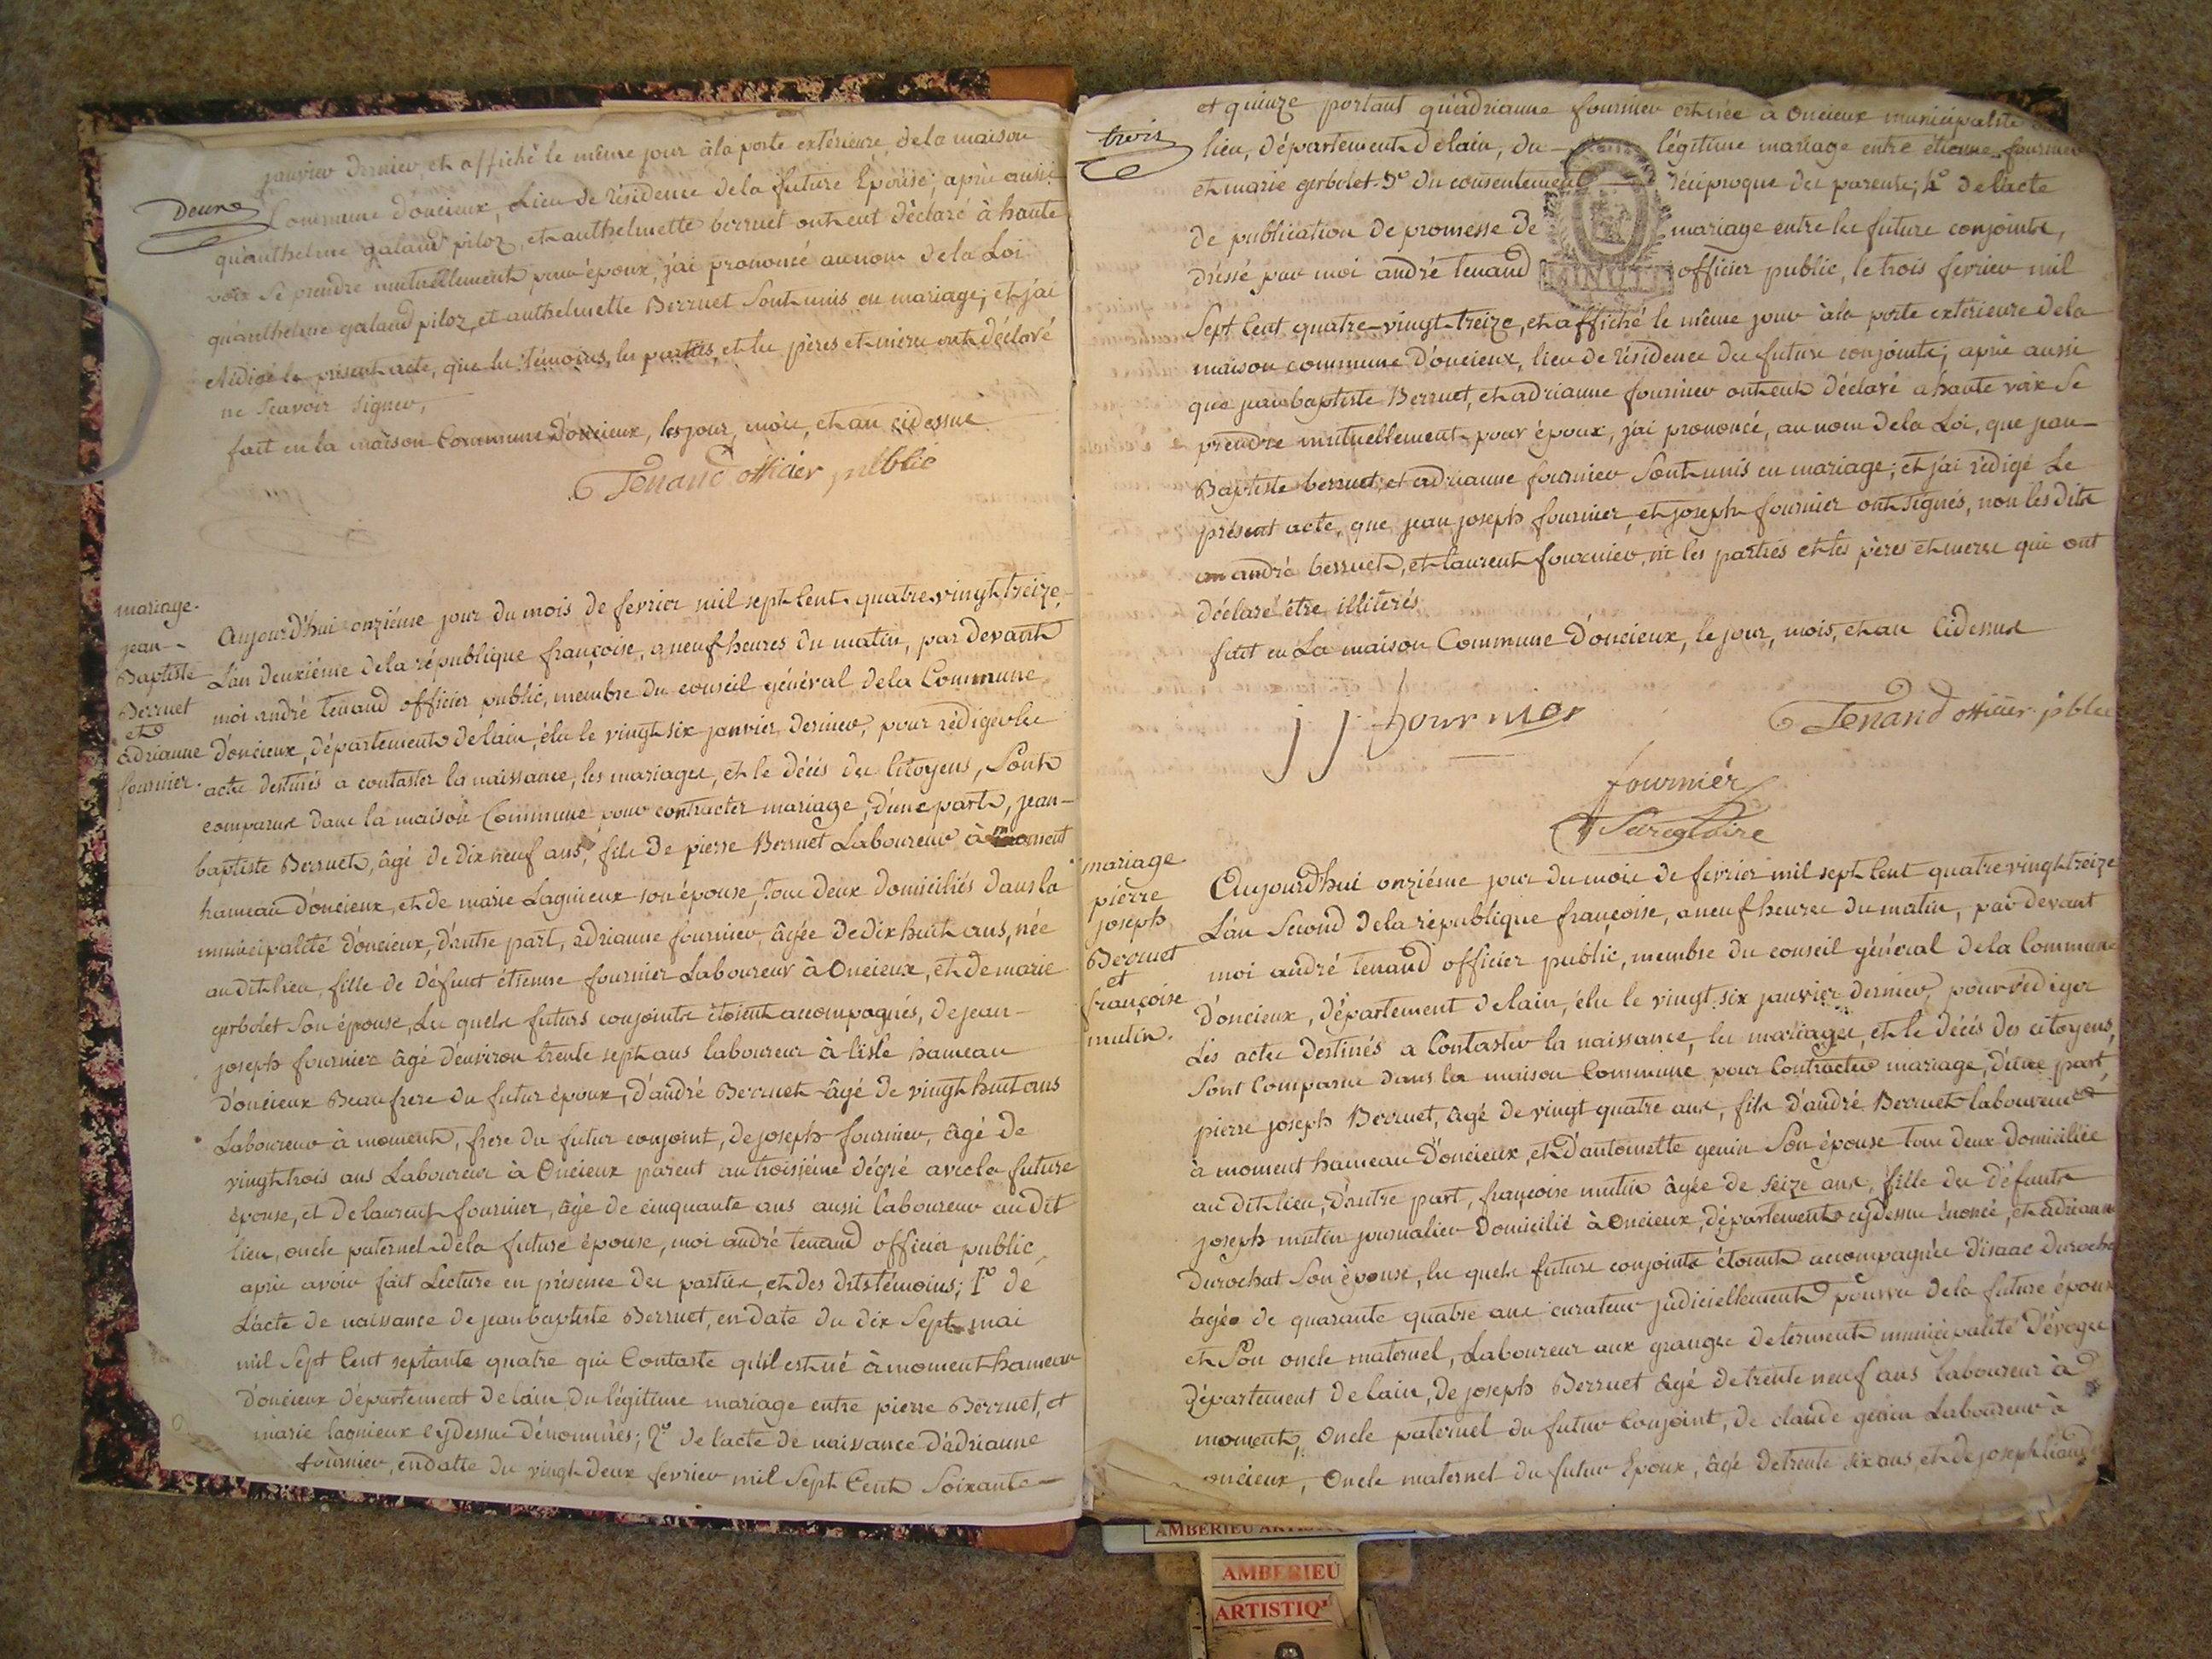 janvier dernier, et affiché le même jour à la porte extérieure, de la maison
Deux
Commune d'oncieux, Lieu de résidence de la future Epouse; après aussi
qu'anthelme galand piloz, et anthelmette berruet ont eut déclaré à haute
voix se prendre mutuellement pour époux, j'ai prononcé au nom de la Loi
qu'anthelme galand piloz, et anthelmette Berruet sont unis en mariage; et j'ai
rédigé le présent acte, que les témoins, les parties, et les pères et mères ont déclaré
ne scavoir signer,
fait en la maison Commune d'oncieux, les jour, mois, et an cidessus
Tenand officier public
mariage.
jean-
Baptiste
Berruet
et
adrianne
fournier.
Aujourd'hui onziéme jour du mois de fevrier mil sept Cent quatre vingt treize,
L'an deuxiéme de la république françoise, a neuf heures du matin, par devant
moi andré tenand officier public, membre du conseil général de la Commune
d'oncieux, département de lain, élu le vingt six janvier dernier, pour rédiger les
actes destinés a contaster la naissance, les mariages, et le décès des Citoyens, Sont
comparus dans la maison Commune pour contracter mariage, d'une part, jean-
baptiste Berruet, âgé de dix neuf ans, fils de pierre Berruet Laboureur à moment
hameau d'oncieux, et de marie Lagnieux son épouse, tous deux domiciliés dans la
municipalité d'oncieux, d'autre part, adrianne fournier, âgée de dix huit ans, née
audit lieu, fille de défunt étienne fournier Laboureur à Oncieux, et de marie
gerbolet son épouse, Les quels futurs conjoints étoient accompagnés, de jean-
joseph fournier âgé d'environ trente sept ans laboureur à lisle hameau
d'oncieux Beaufrere du futur époux, d'andré Berruet âgé de vingt huit ans
Laboureur à moment, frere du futur conjoint, de joseph fournier, âgé de
vingt trois ans Laboureur à Oncieux parent au troisiéme dégré avec la future
épouse, et de laurent fournier, âge de cinquante ans aussi laboureur audit
lieu, oncle paternel de la future épouse, moi andré tenand officier public,
après avoir fait Lecture en présence des parties, et des dits témoins; 1º de
L'acte de naissance de jean baptiste Berruet, en date du dix Sept mai
mil Sept Cent septante quatre qui Contaste qu'il est né à moment hameau
d'oncieux département de lain, du légitime mariage entre pierre Berruet, et
marie lagnieux cydessus dénommés; 2º de l'acte de naissance d'adrianne
fournier, en datte du vingt deux fevrier mil Sept Cent Soixante
et quinze portant qu'adrianne fournier est née à Oncieux municipalité
trois
lieu, département de lain, du légitime mariage entre étienne fournier
et marie gerbolet. 3º du consentement réciproque des parents; 4º de l'acte
de publication de promesse de mariage entre les futurs conjoints,
dressé par moi andré tenand officier public, le trois fevrier mil
MINUTE
Sept Cent quatre-vingt-treize, et affiché le même jour à la porte extérieure de la
maison commune d'oncieux, lieu de résidence des futurs conjoints; après aussi
que jean baptiste Berruet, et adrianne fournier ont eut déclaré a haute voix se
prendre mutuellement pour époux, j'ai prononcé, au nom de la Loi, que jean-
Baptiste berruet, et adrianne fournier sont unis en mariage; et j'ai rédigé Le
présent acte, que jean joseph fournier, et joseph fournier ont signés, non les dits
andré berruet, et laurent fournier, ni les parties et les pères et meres qui ont
déclaré être illiterés
fait en La maison Commune d'oncieux, le jour, mois, et an cidessus
jj fournier
Tenand officier public
fournier
Secretaire
mariage
pierre
joseph
Berruet
et
françoise
mutin.
Aujourd'hui onziéme jour du mois de fevrier mil sept Cent quatre vingt treize
L'an Second de la république françoise, a neuf heures du matin, par devant
moi andré tenand officier public, membre du conseil général de la Commune
d'oncieux, département de lain, élu le vingt six janvier dernier, pour rédiger
Les actes destinés a Contaster la naissance, les mariages, et le décès des citoyens,
Sont Comparus dans la maison Commune pour Contracter mariage, d'une part,
pierre joseph Berruet, âgé de vingt quatre ans, fils d'andré Berruet laboureur
à moment hameau d'oncieux, et d'antoinette genin Son épouse tous deux domiciliés
audit lieu, d'autre part, françoise mutin âgée de seize ans, fille de défunt
joseph mutin journalier domicilié à Oncieux, département cydessus énoncé, et adrianne
Durochat Son épouse, les quels futurs conjoints étoient accompagnés d'isaac duroch
âgé de quarante quatre ans curateur judiciellement pourvu de la future épouse
et Son oncle maternel, Laboureur aux granges de terment municipalité d'évoges
département de lain, de joseph Berruet âgé de trente neuf ans laboureur à
moment, Oncle paternel du futur Conjoint, de claude genin Laboureur à
oncieux, Oncle maternel du futur Epoux, âgé de trente six ans, et de joseph
AMBERIEU
AMBERIEU
ARTISTIQ